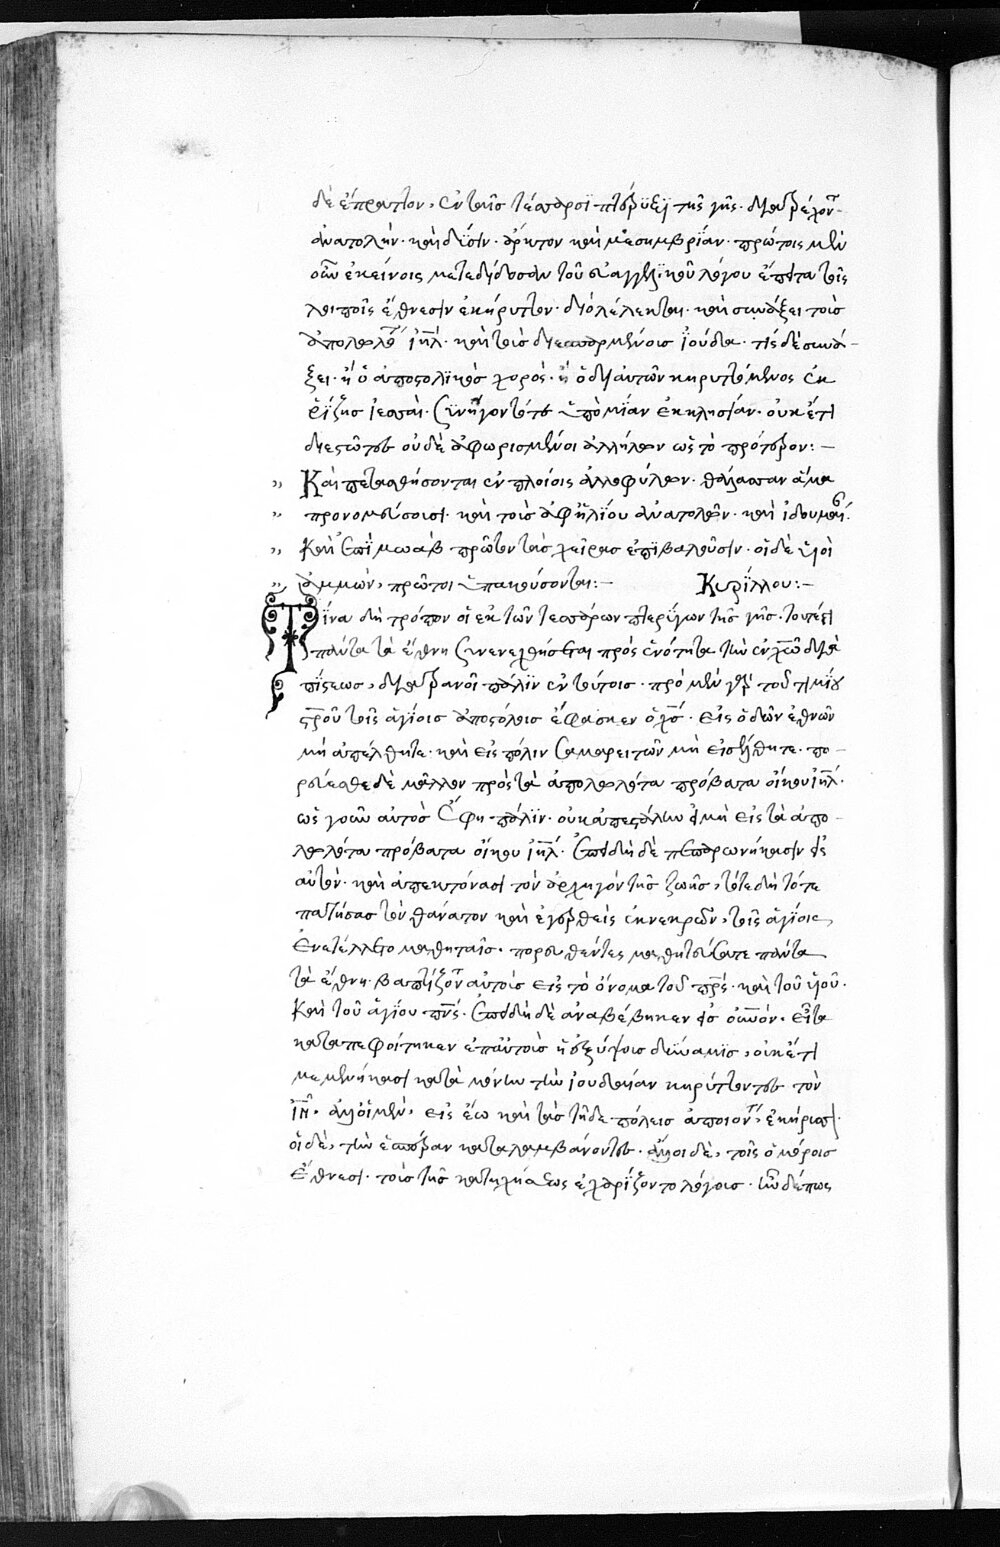 δὲ ἔπραττον, ἐν ταῖς τέσσαρσι πτέρυξϊ τῆς γῆς· διατρέχοντες
ἀνατολὴν· καὶ δύσιν· ἄρκτον καὶ μεσημβρίαν· πρώτοις μὲν
οὖν ἐκείνοις μετεδίδοσαν τοῦ εὐαγγελικοῦ λόγου ἔπειτα τοῖς
λοιποῖς ἔθνεσιν ἐκήρυττον· διὸ λέλεκται· καὶ συνάξει τοὺς
ἀπολομένους ἰηλ· καὶ τοὺς διεσπαρμένους ἰούδα· τίς δὲ συνά-
ξει· ἢ ὁ ἀποστολικὸς χορός· ἢ ὁ δι' αὐτῶν κηρυττόμενος ἐκ
ῥίζης ἰεσσαί· συνῆγον τότε ὑπὸ μίαν ἐκκλησίαν· οὐκέτι
διεστῶτες οὐδὲ ἀφωρισμένοι ἀλλήλων ὡς τὸ πρότερον:-
Καὶ πετασθήσονται ἐν πλοίοις ἀλλοφύλων· θάλασσαν ἅμα
προνομεύσουσι· καὶ τοὺς ἀφ' ἡλίου ἀνατολῶν· καὶ ἰδουμαί.
Καὶ ἐπὶ μωὰβ πρῶτον τὰς χεῖρας ἐπιβαλοῦσιν· οἱ δὲ υἱοὶ
ἀμμών, πρῶτοι ὑπακούσονται:- Κυρίλλου:-
Τίνα δὴ τρόπον οἱ ἐκ τῶν τεσσάρων πτερύγων τῆς γῆς· τουτέστι
πάντα τὰ ἔθνη συνενεχθήσεται πρὸς ἑνότητα τὴν ἐν χῶ διὰ
πίστεως, διατρανοῖ πάλϊν ἐν τούτοις· πρὸ μὲν γὰρ τοῦ τιμίου
στροῦ τοῖς ἁγίοις ἀποστόλοις ἔφασκεν ὁ χς· εἰς ὁδὸν ἐθνῶν
μὴ ἀπέλθητε· καὶ εἰς πόλιν σαμαρειτῶν μὴ εἰσέλθητε· πο-
ρεύεσθε δὲ μᾶλλον πρὸς τὰ ἀπολωλότα πρόβατα οἴκου ἰηλ·
ὡς γοῦν αὐτὸς ἔφη πάλϊν· οὐκ ἀπεστάλην εἰ μὴ εἰς τὰ ἀπο-
λωλότα πρόβατα οἴκου ἰηλ· ἐπειδὴ δὲ πεπαρωνήκασιν εἰς
αὐτόν· καὶ ἀπεκτόνασι τὸν ἀρχηγὸν τῆς ζωῆς, τότε δὴ τότε
πατήσας τὸν θάνατον καὶ ἐγερθεὶς ἐκ νεκρῶν, τοῖς ἁγίοις
ἐνετέλλετο μαθηταῖς· πορευθέντες μαθητεύσατε πάντα
τὰ ἔθνη· βαπτίζοντες αὐτοὺς εἰς τὸ ὄνομα τοῦ πρς· καὶ τοῦ υἱοῦ·
Καὶ τοῦ ἁγίου πνς· ἐπειδὴ δὲ ἀναβέβηκεν εἰς οὐνόν· εἶτα
καταπεφοίτηκεν ἐπ' αὐτοὺς ἡ ἐξ ὕψους δύναμϊς, οὐκέτι
μεμενήκασι κατὰ μόνην τὴν ἰουδαίαν κηρύττοντες τὸν
ἰν· ἀλλ' οἱ μὲν, εἰς ἕω καὶ τὰς τῇδε πόλεις ἀπιόντες, ἐκήρυττον.
οἱ δὲ, τὴν ἑσπέραν καταλαμβάνοντες· ἄλλοι δὲ, τοῖς ὁμόροις
ἔθνεσι· τοὺς τῆς κατηχήσεως ἐχαρίζοντο λόγους· ἦν δέ πως